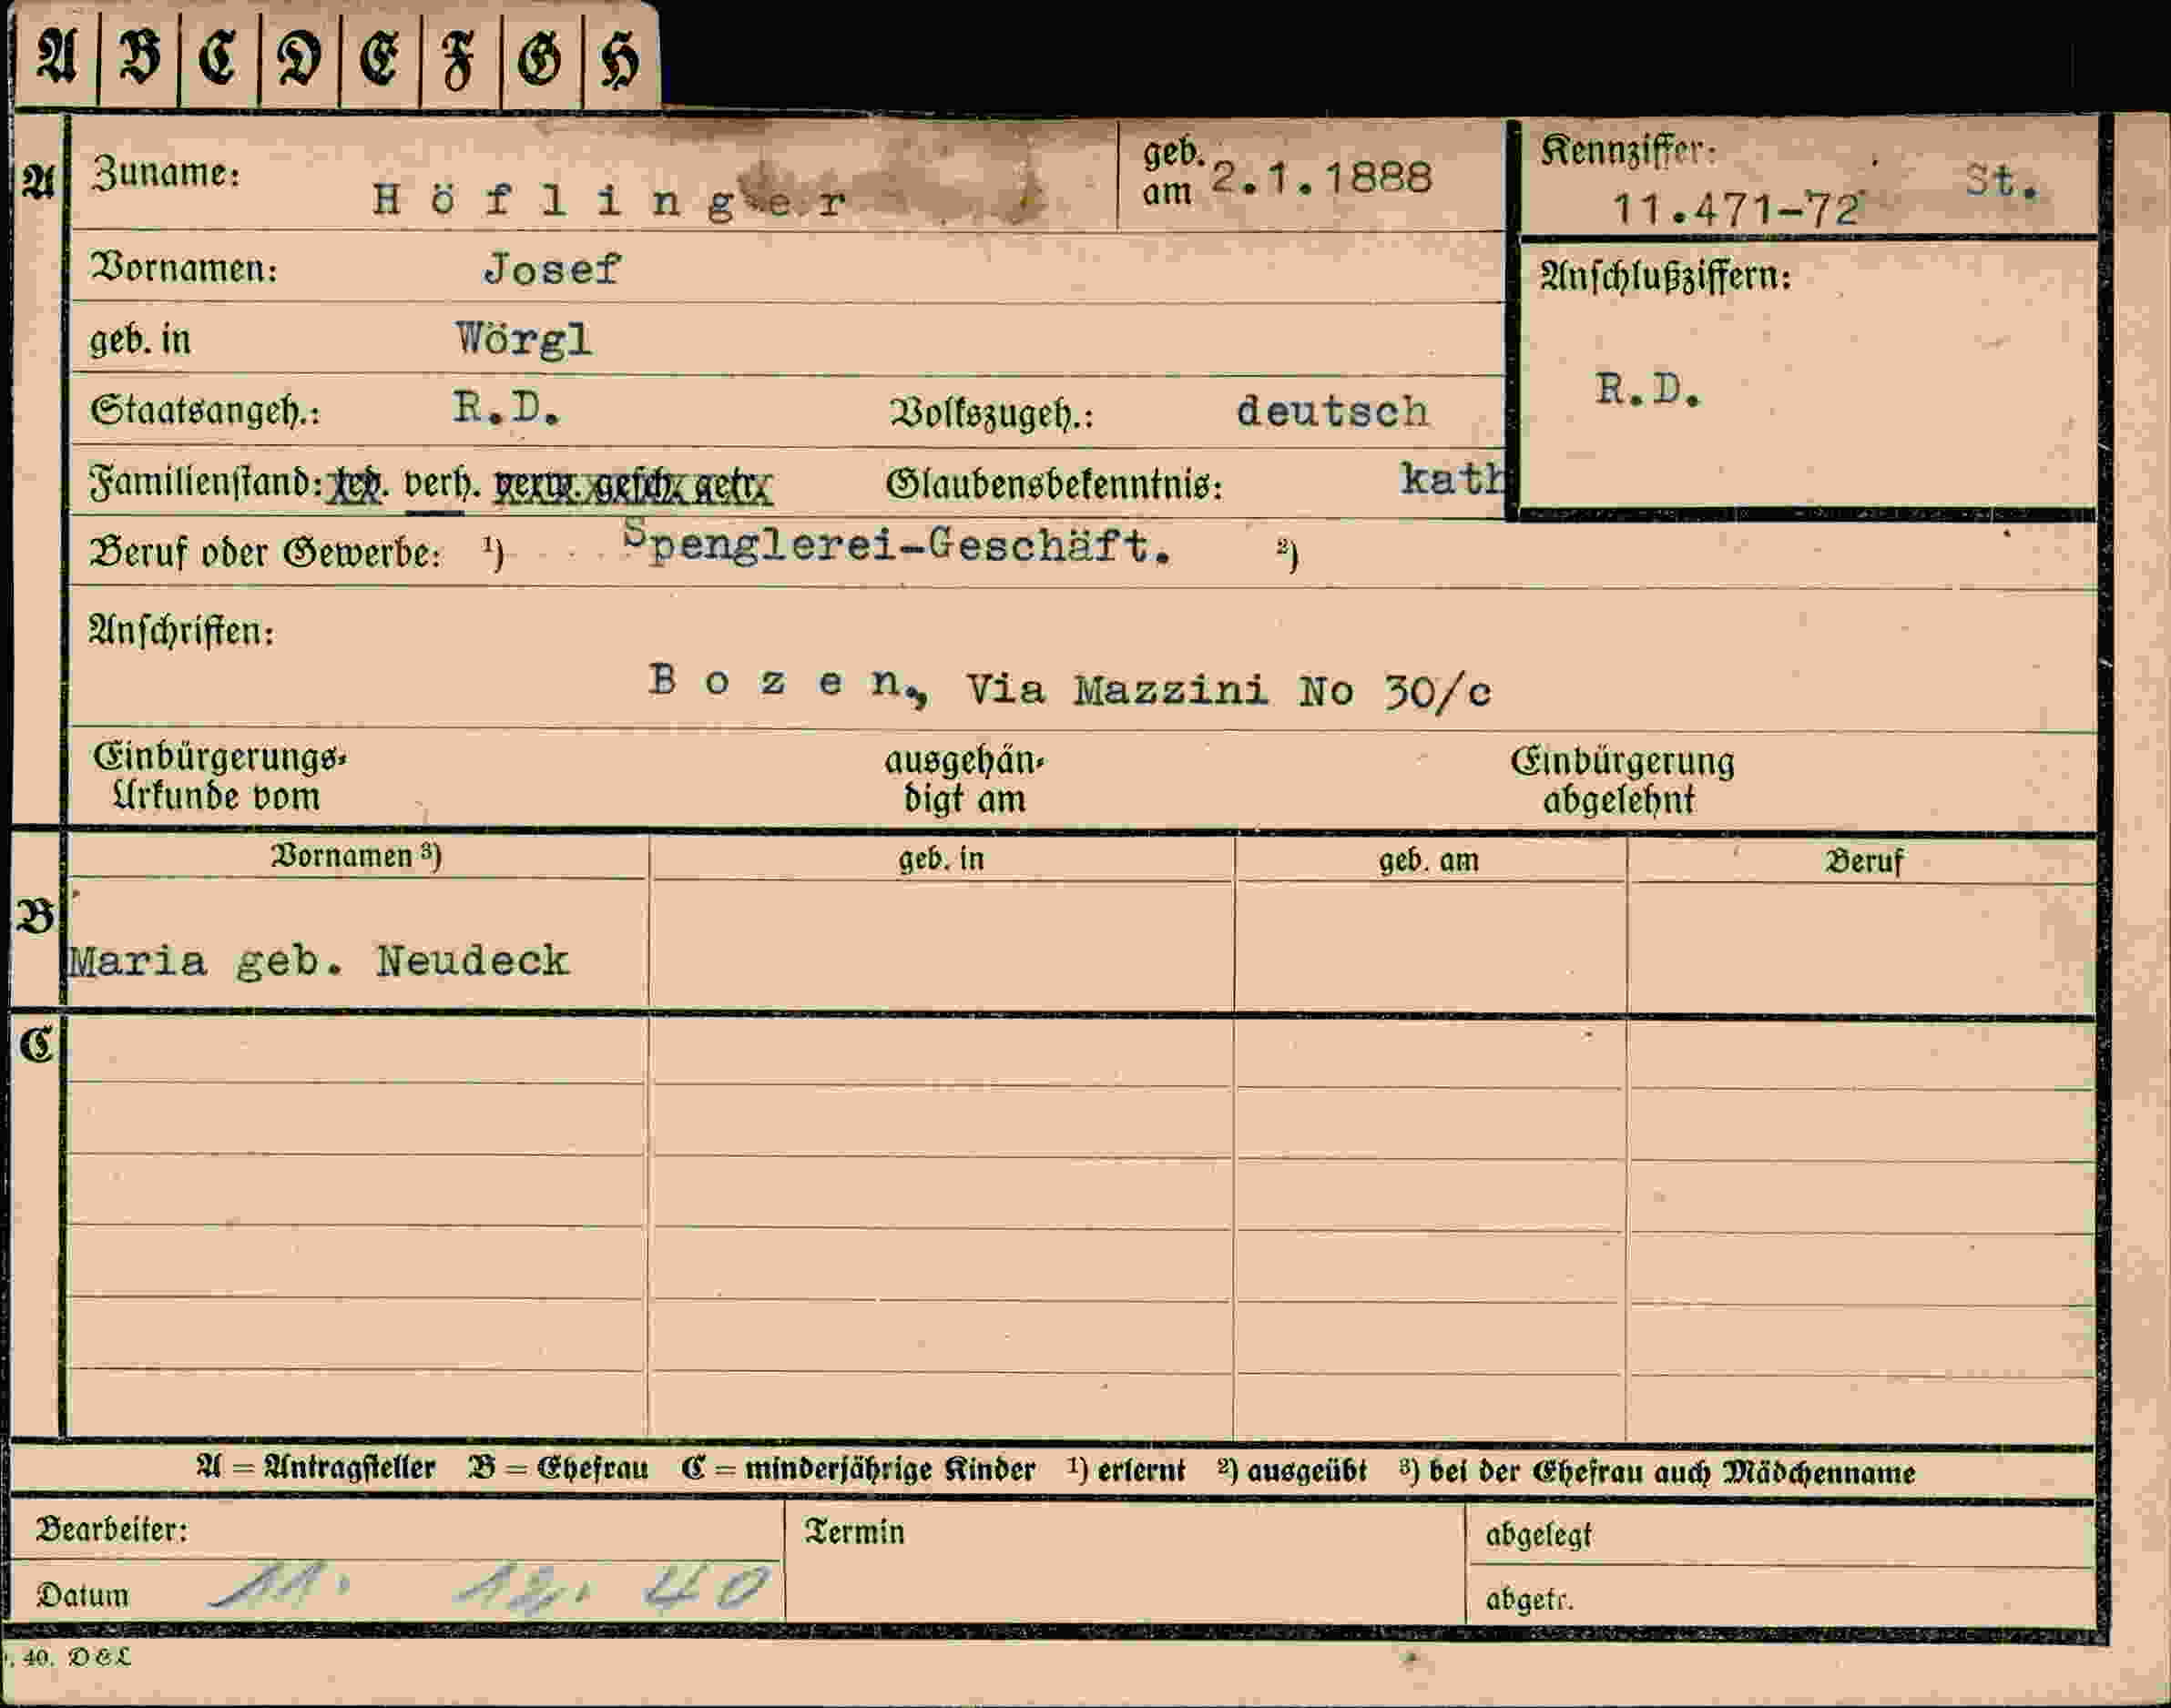 A B C D E F G H
A Zuname: Höflinger geb. am 2.1.1888 Kennziffer: 11.471-72 St.
Vornamen: Josef Anschlußziffern:
geb. in Wörgl
Staatsangeh.: R.D. Volkszugeh.: deutsch R.D.
Familienstand: led. verh. verw. gesch. getr. Glaubensbekenntnis: kath
Beruf oder Gewerbe: ¹) Spenglerei-Geschäft. ²)
Anschriften:
Bozen, Via Mazzini No 30/c
Einbürgerungs-Urkunde vom ausgehändigt am Einbürgerung abgelehnt
Vornamen ³) geb. in geb. am Beruf
B
Maria geb. Neudeck
C
A = Antragsteller B = Ehefrau C = minderjährige Kinder ¹) erlernt ²) ausgeübt ³) bei der Ehefrau auch Mädchenname
Bearbeiter: Termin abgelegt
Datum 11. 12. 40 abgetr.
40. D & L